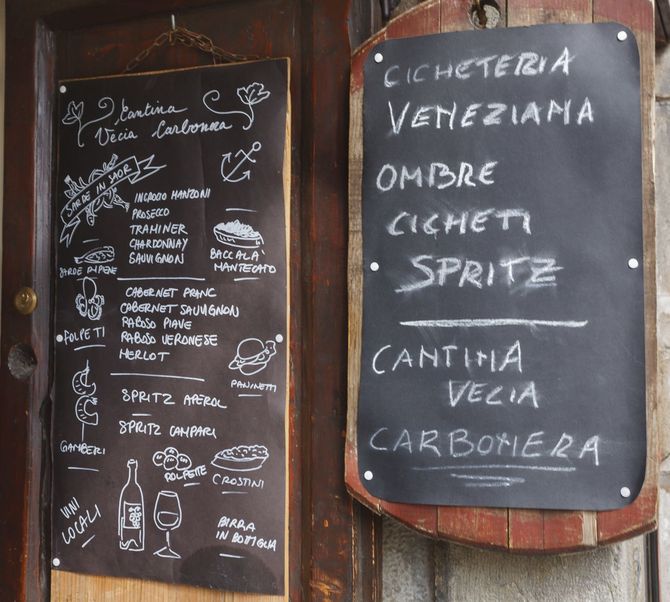 Cantina
Vecia Carbonera
SARDE IN SAOR
INCROCIO MANZONI
PROSECCO
TRAMINER
CHARDONNAY
SAUVIGNON
SARDE RIPIENE
BACCALA'
MANTECATO
CABERNET FRANC
CABERNET SAUVIGNON
RABOSO PIAVE
RABOSO VERONESE
MERLOT
FOLPETI
PANINETTI
SPRITZ APEROL
SPRITZ CAMPARI
GAMBERI
POLPETTE
CROSTINI
VINI
LOCALI
BIRRA
IN BOTTIGLIA
CICHETERIA
VENEZIANA
OMBRE
CICHETI
SPRITZ
CANTINA
VECIA
CARBONERA